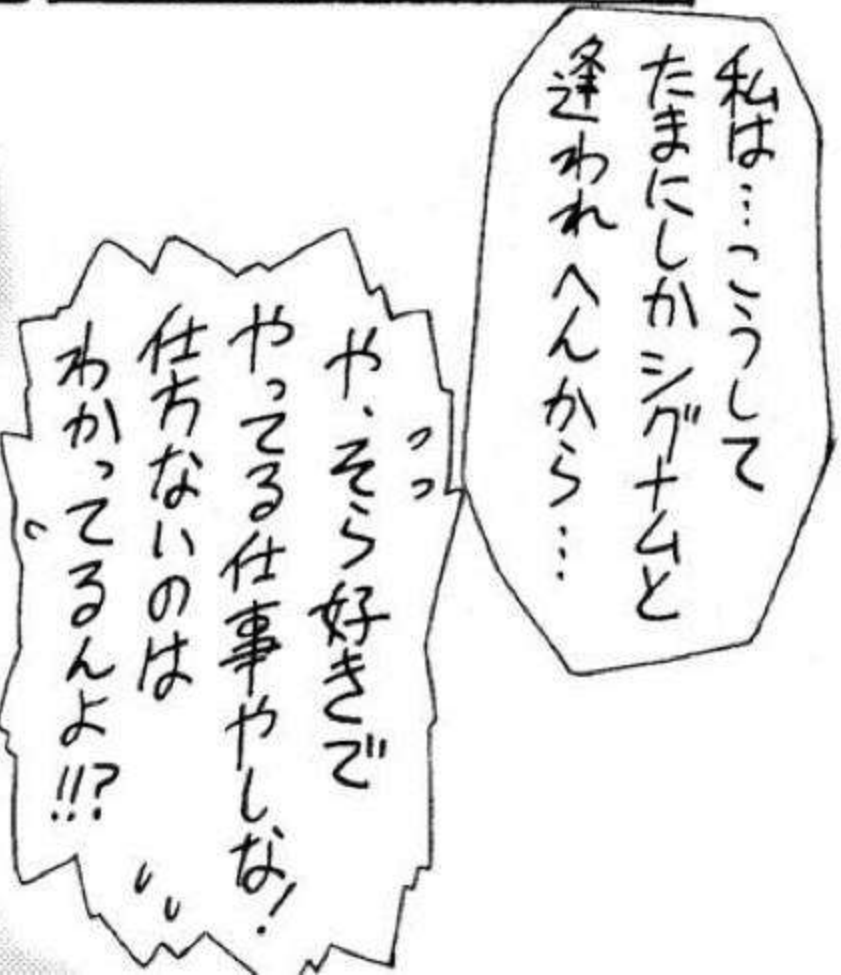 私は…こうして
たまにしかシグナムと
逢われへんから…
や、そら好きで
やってる仕事やしな!
仕方ないのは
わかってるんよ!!?